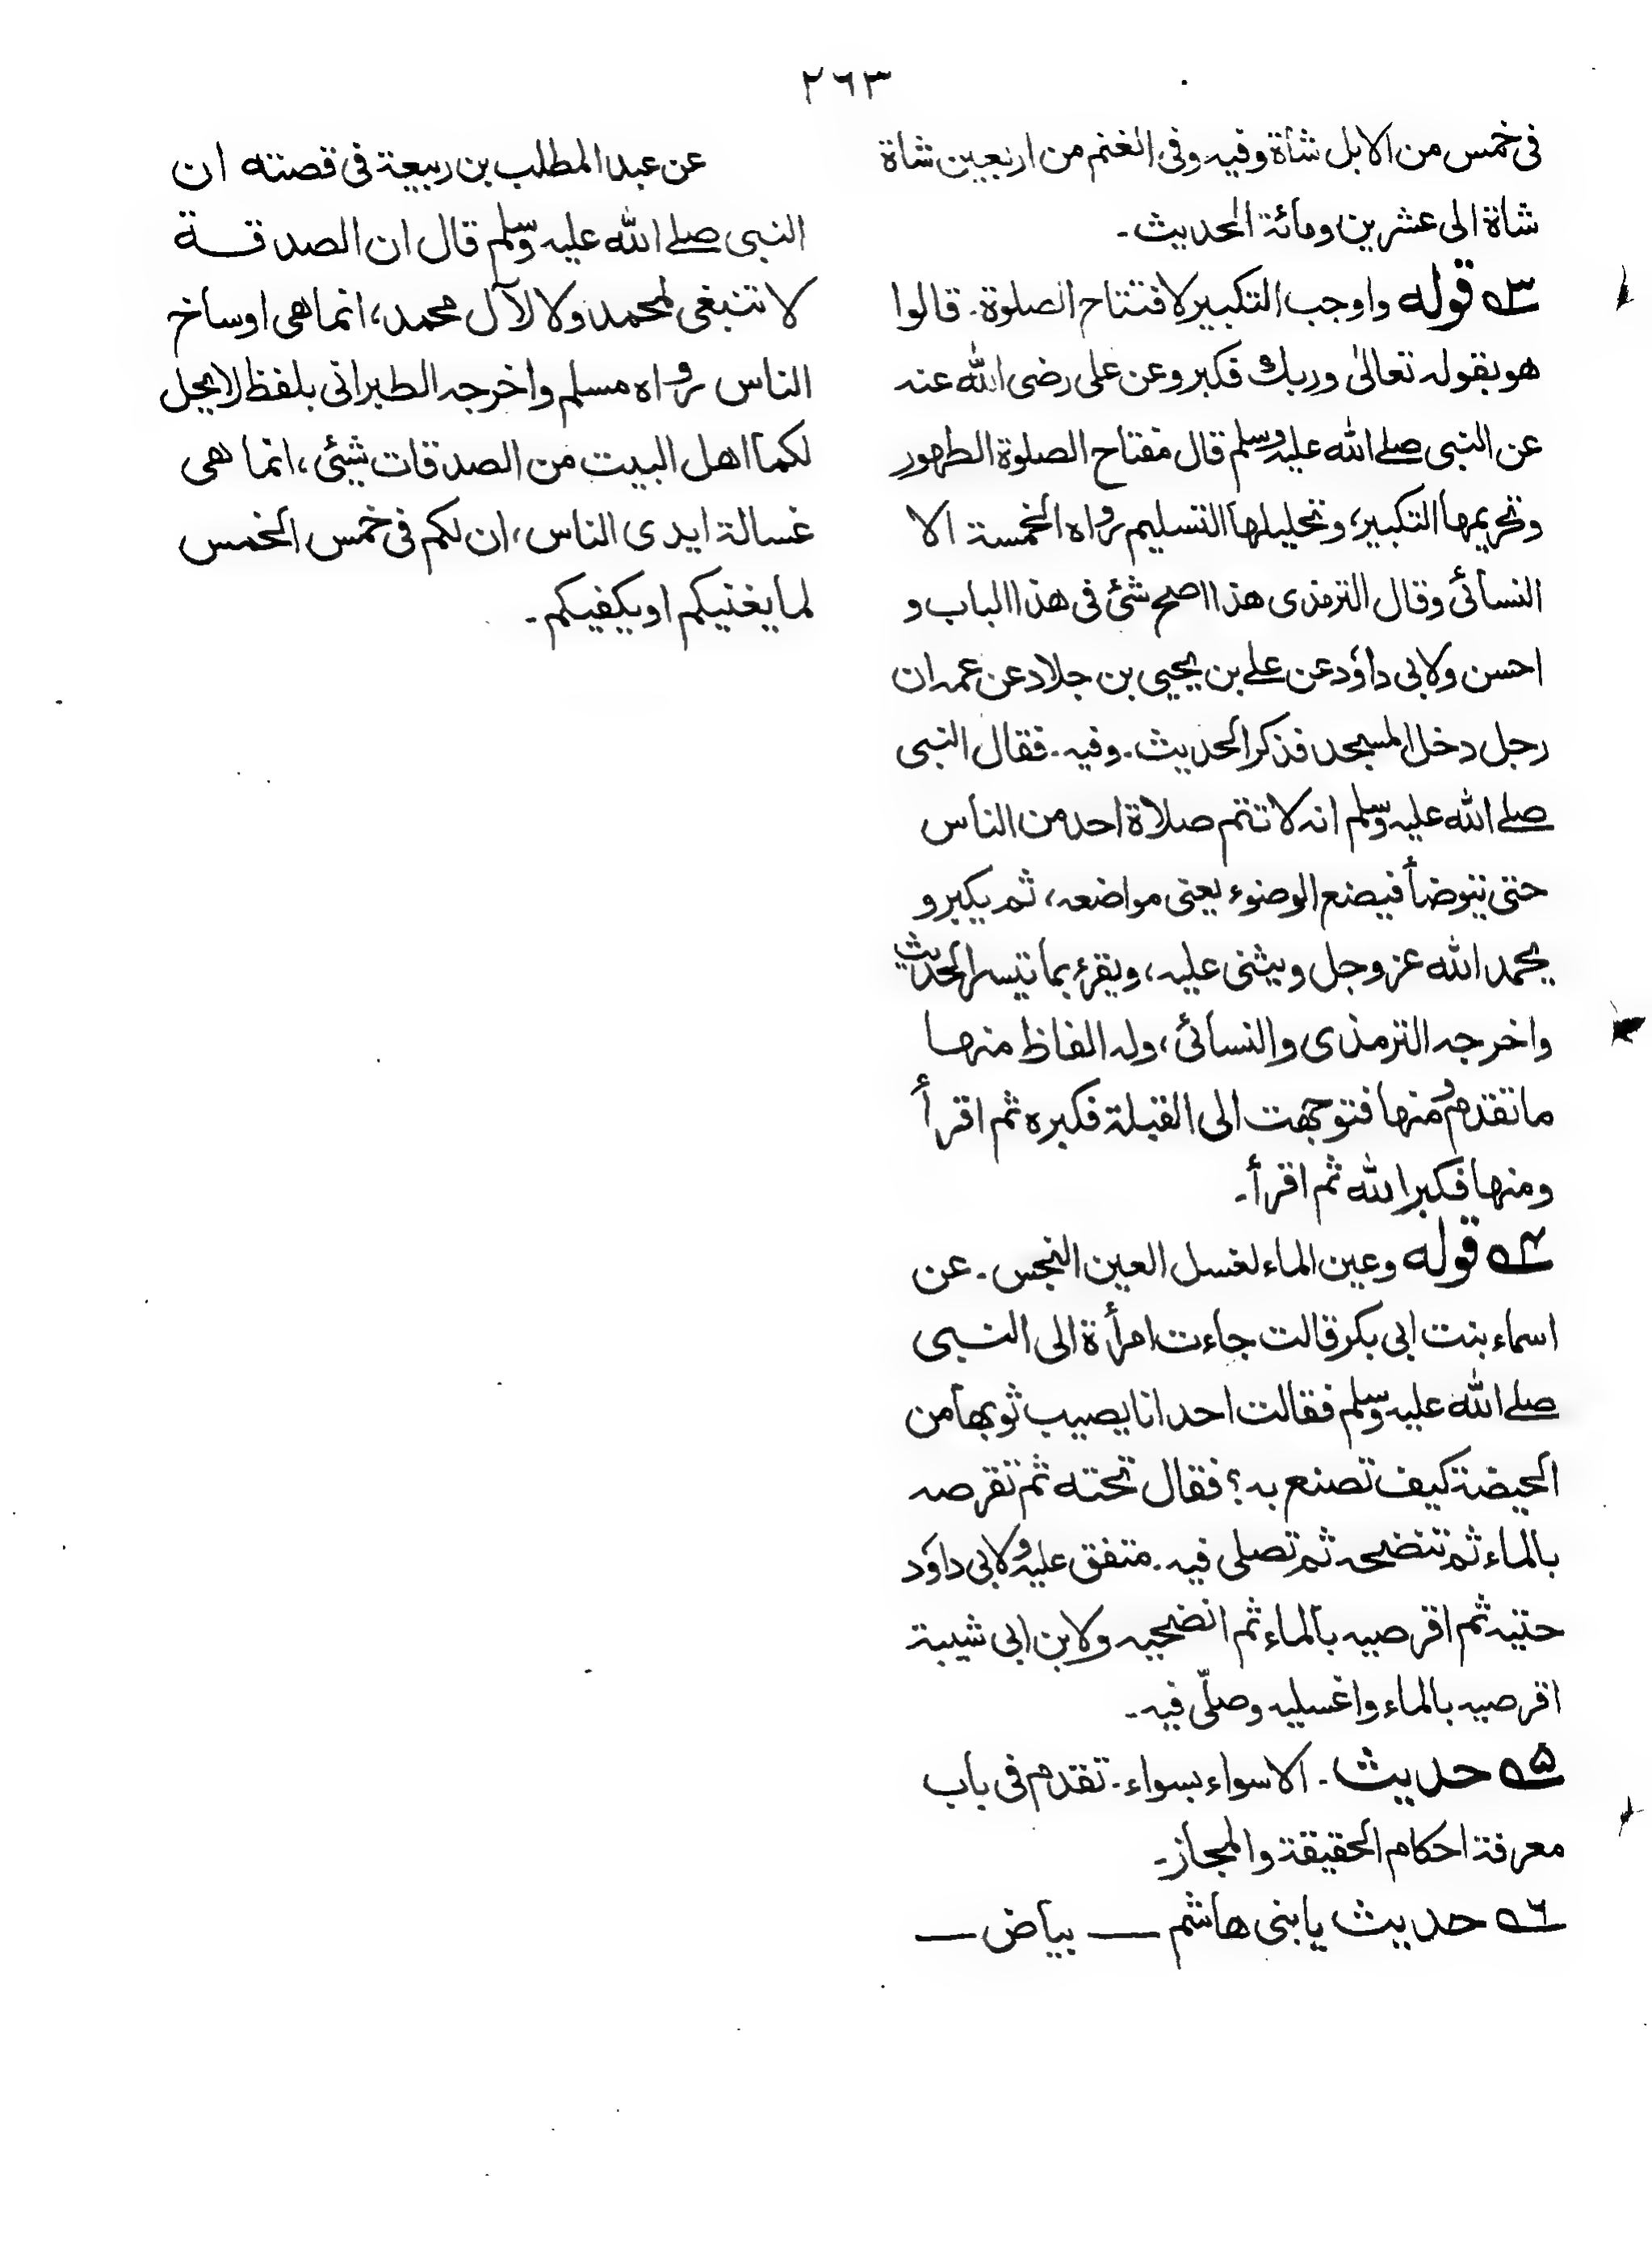 ٢٦٣
فى خمس من الابل شاة وفيه وفى الغنم من اربعين شاة
شاة الى عشرين ومائة الحديث۔
٣ قوله واوجب التكبير لافتتاح الصلوة۔ قالوا
هو بقوله تعالىٰ وربك فكبر وعن على رضى الله عنه
عن النبى صلے الله عليه وسلم قال مفتاح الصلوة الطهور
وتحريمها التكبير، وتحليلها التسليم رواه الخمسة الا
النسائى وقال الترمذى هذا اصح شئ فى هذا الباب و
احسن ولابى داؤد عن علے بن يحيى بن جلاد عن عمه ان
رجل دخل المسجد فذكر الحديث۔ وفيه۔ فقال النبى
صلے الله عليه وسلم انه لا تتم صلاة احد من الناس
حتى يتوضأ فيضع الوضوء يعنى مواضعه، ثم يكبر و
يحمد الله عزوجل ويثنى عليه، ويقرء بما تيسر الحديث
واخرجه الترمذى والنسائى، وله الفاظ منها
ما تقدم ومنها فتوجهت الى القبلة فكبره ثم اقرأ
ومنها فكبر الله ثم اقرأ۔
٤ قوله وعين الماء لغسل العين النجس۔ عن
اسماء بنت ابى بكر قالت جاءت امرأة الى النبى
صلے الله عليه وسلم فقالت احدانا يصيب ثوبها من
الحيضة كيف تصنع به؟ فقال تحته ثم تقرصه
بالماء ثم تنضحه ثم تصلى فيه۔ متفق عليه ولابى داؤد
حتيه ثم اقرصيه بالماء ثم انضحيه ولابن ابى شيبة
اقرصيه بالماء واغسليه وصلّى فيه۔
۵ حديث۔ الاسواء بسواء۔ تقدم فى باب
معرفة احكام الحقيقة والمجاز۔
٦ حديث يا بنى هاشم —— بياض ——
عن عبد المطلب بن ربيعة فى قصته ان
النبى صلے الله عليه وسلم قال ان الصدقة
لا تنبغى لمحمد ولا لآل محمد، انما هى اوساخ
الناس رواه مسلم واخرجه الطبرانى بلفظ لا يحل
لكما اهل البيت من الصدقات شئى، انما هى
غسالة ايدى الناس، ان لكم فى خمس الخمس
لما يغنيكم او يكفيكم۔